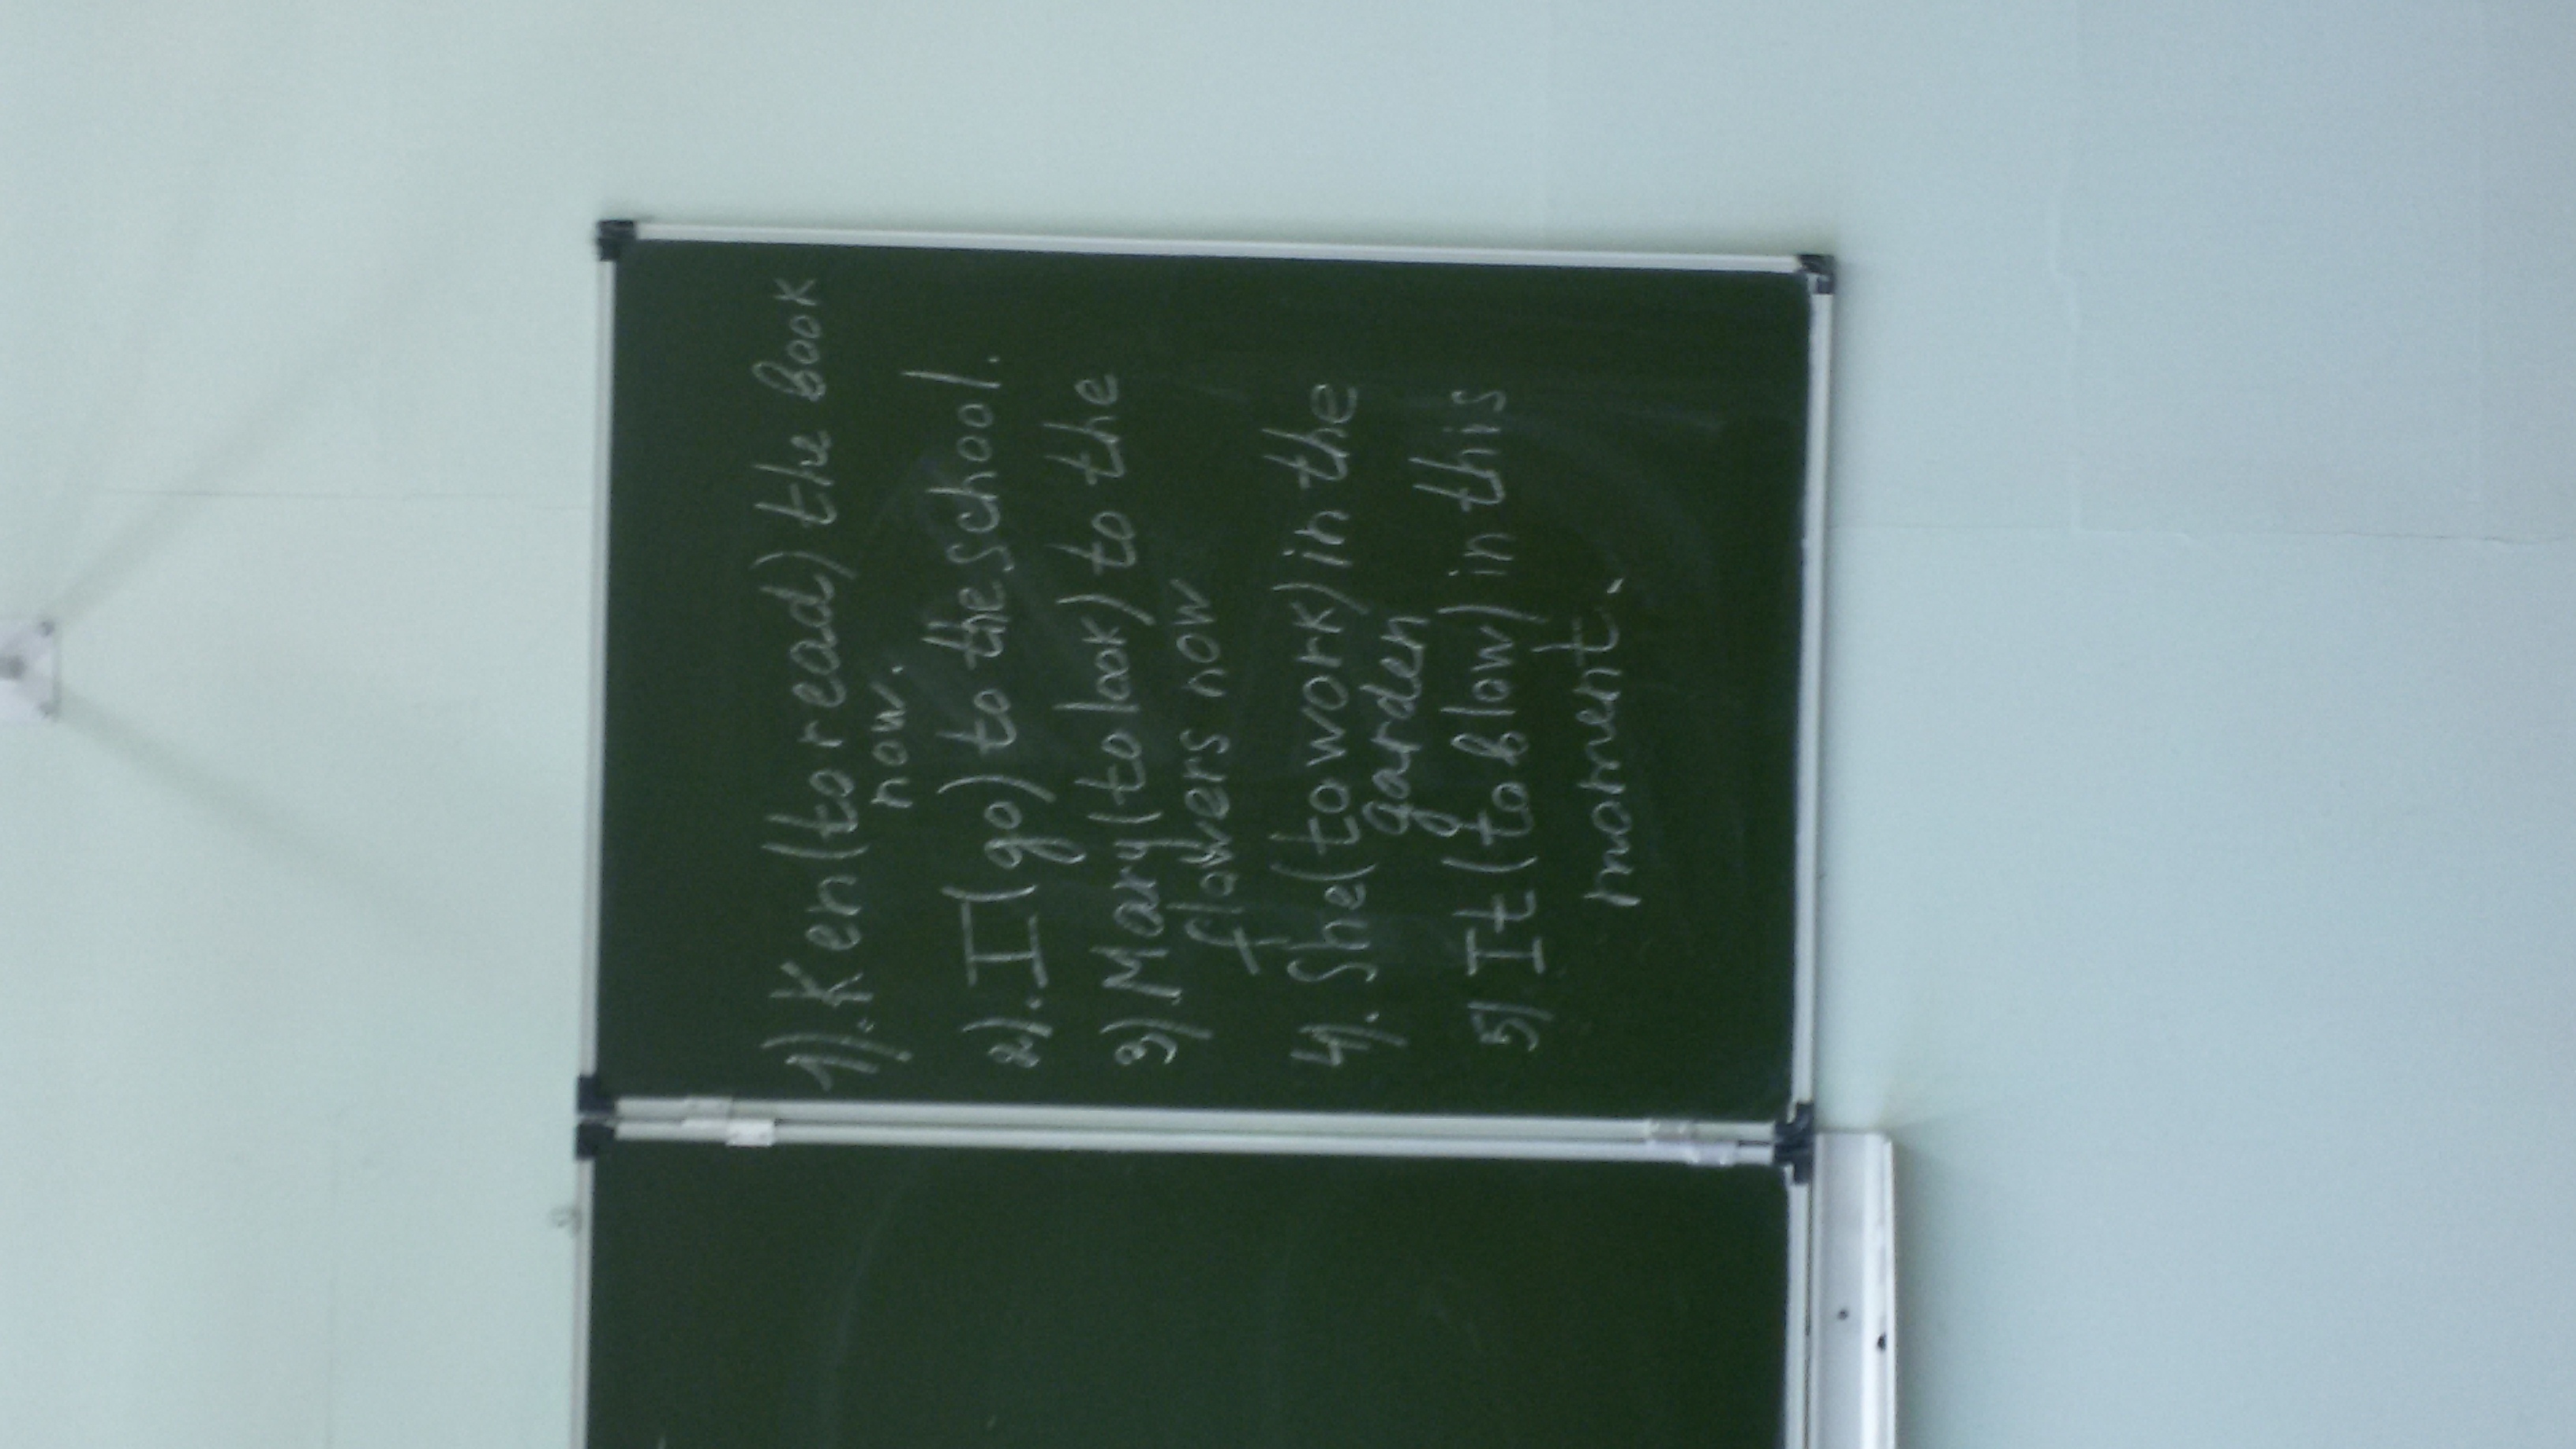 1). Ken(to read) the book
now.
2). I(go) to the school.
3) Mary(to look) to the
flowers now
4). She(to work) in the
garden
5) It (to blow) in this
moment.